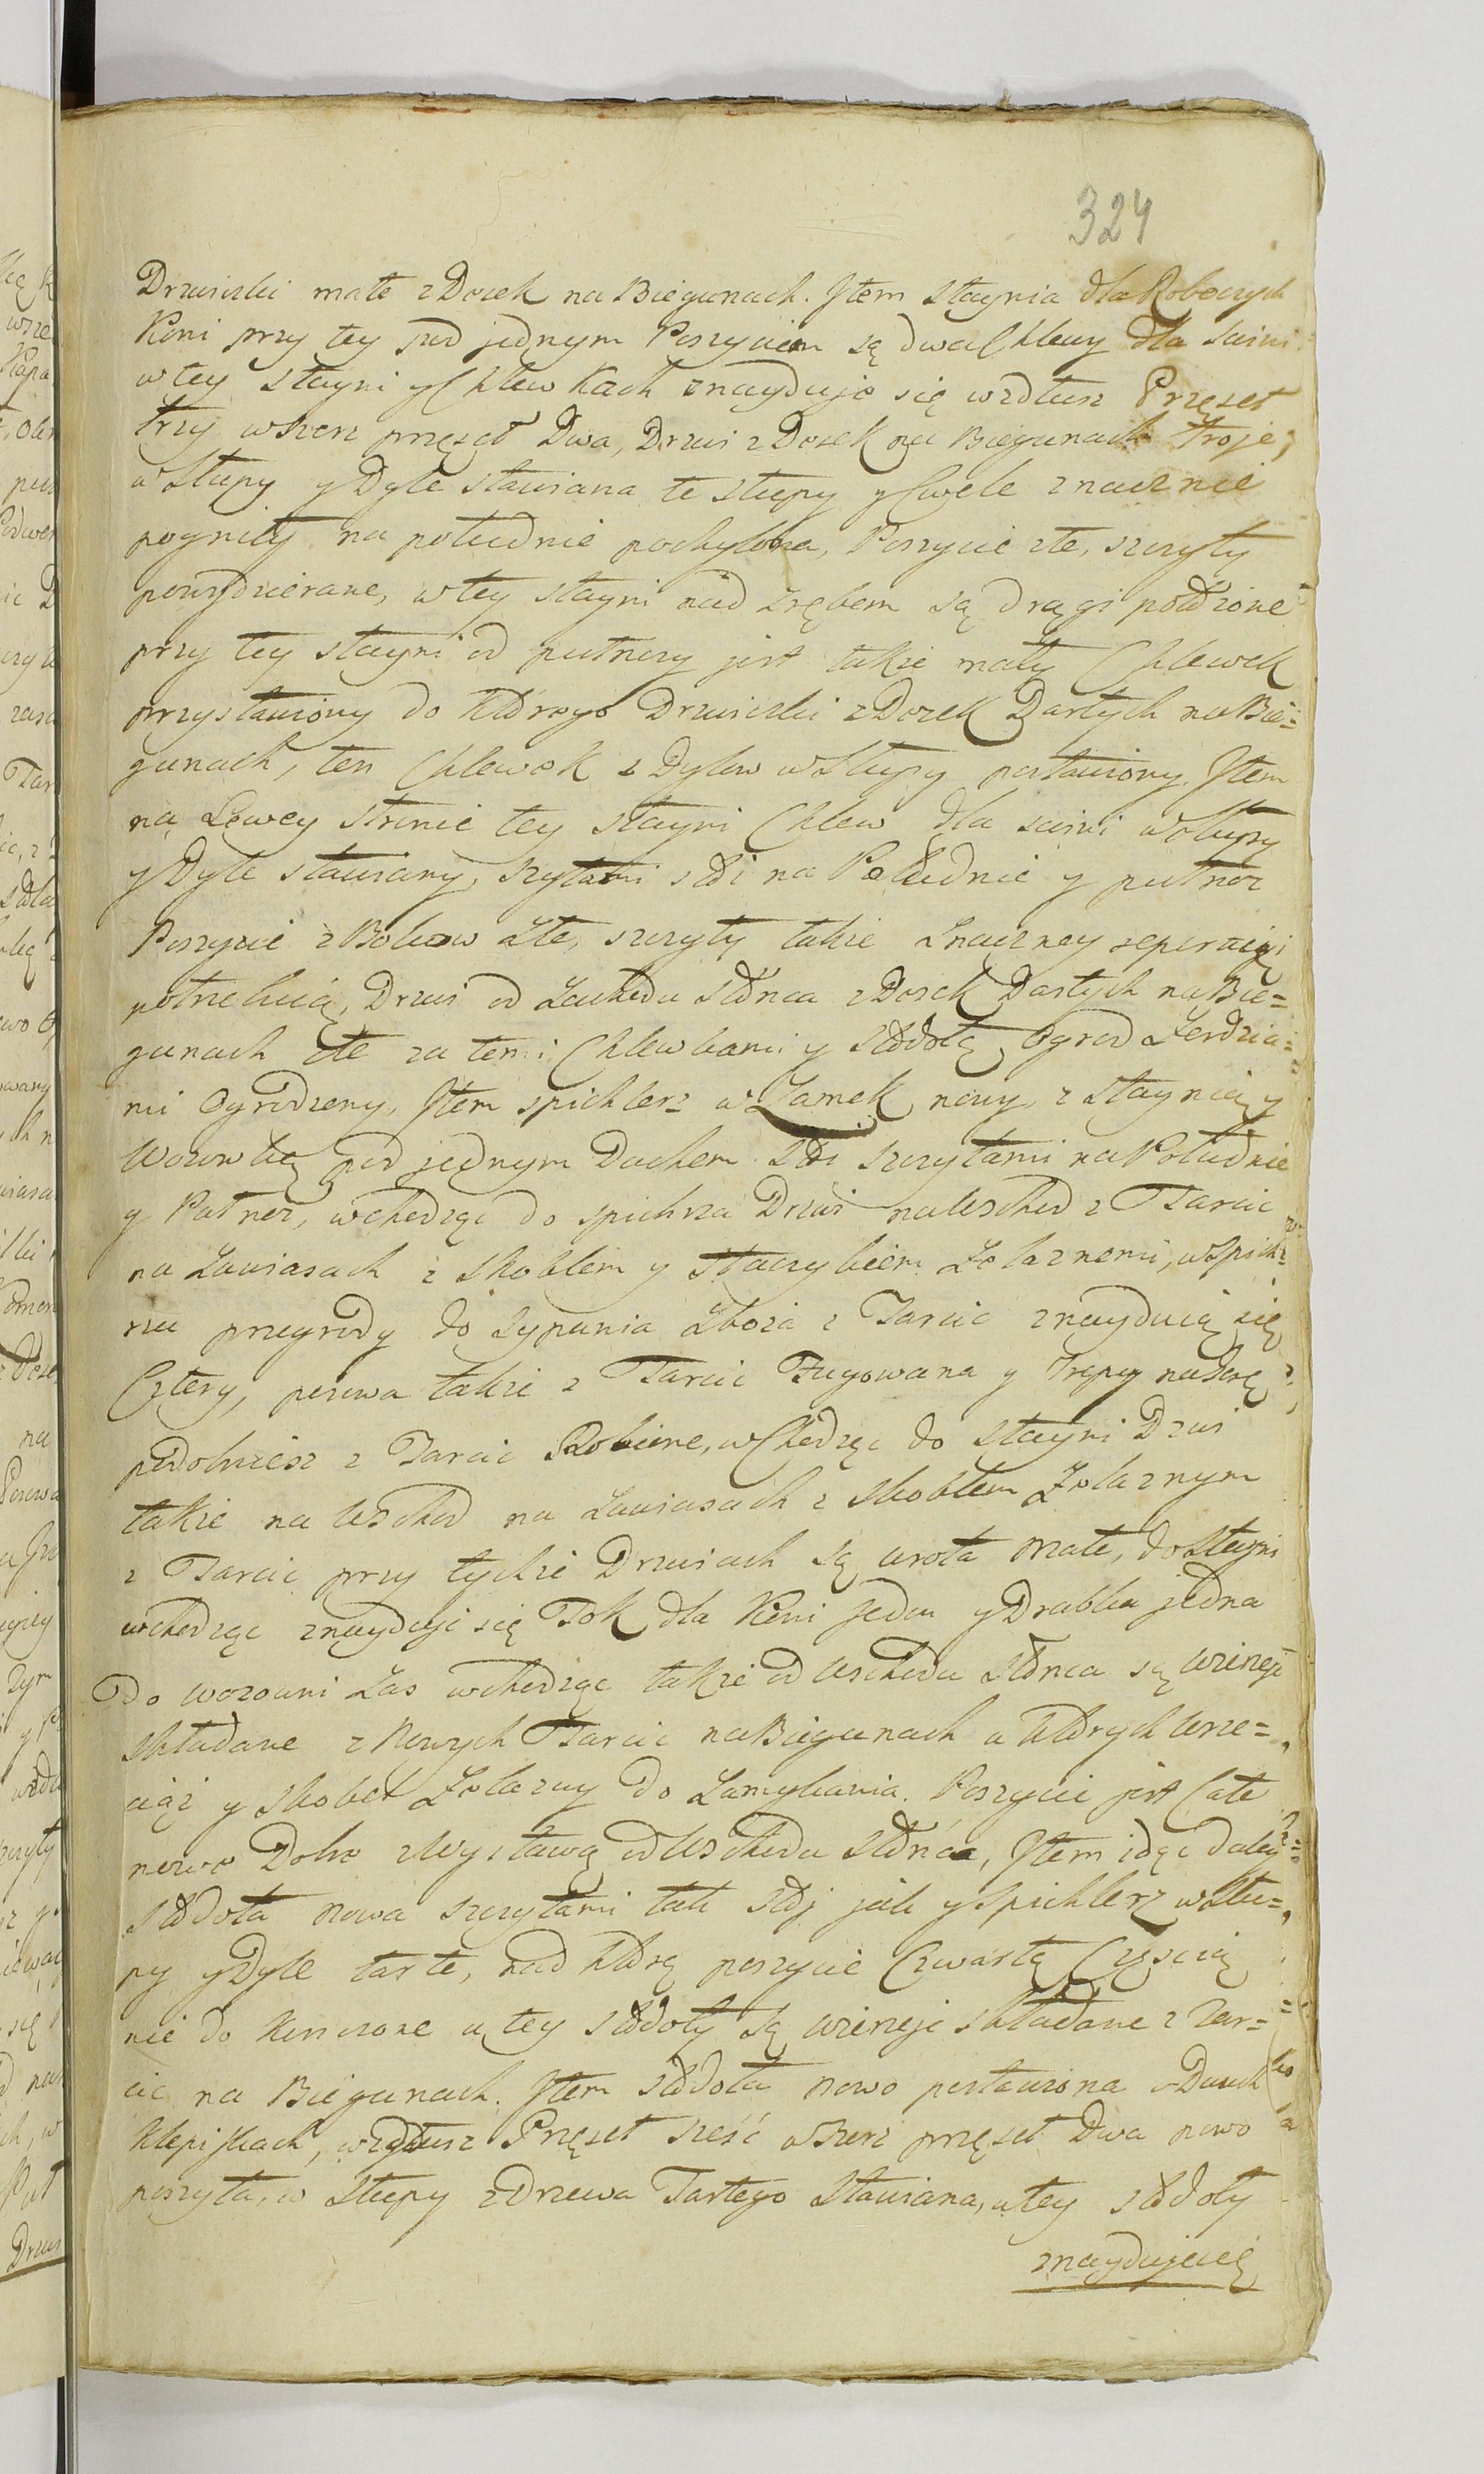 324
Drzwiczki małe z Dosek na Biegunach. Jtem Staynia dla Roboczych
Koni przy tey pod jednym Poszyciem są dwa Chlewy dla świni
w tey stayni y Chlewkach znayduje się wzdłusz Przęseł
trzy wszerz przęseł Dwa, Drzwi z Dosek na Biegunach troje,
w Słupy y Dyle stawiana te słupy y Cwele znacznie
pogniły na południe pochylona, Poszycie złe, szczyty
powydzierane, w tey stayni nad zrębem są drągi położone
przy tey stayni od putnocy jest także mały Chlewek
przystawiony do którego Drzwiczki z Dozek Dartych na Bie=
gunach, ten Chlewek z Dylow w Słupy postawiony. Jtem
na Lewey stronie tey stayni Chlew dla świni w słupy
y Dyle stawiany, szytami stoi na Południe y putnoc
Poszycie z Bokow złe, szczyty także znaczney reperacyi
potrzebuią, Drzwi od Zachodu słońca z Dosek Dartych na Bie=
gunach złe za temi Chlewkami y stodołą Ogrod Zerdzia=
mi Ogrodzony, Jtem spichlerz w Zamek nowy z Staynią y
Wozownią pod jednym Dachem stoi szczytami na Południe
y Putnoc, wchodząc do spichrza Drzwi na Wschod z Tarcic
na Zawiasach z skoblem y Staczykiem Zelaznemi, w Spich=
rzu przegrody do Sypania Zboża z Tarcic znayduią się
Cztery, posowa także z Tarcic Fugowana y Trepy na Gorę
podobniesz z Tarcic Robione, wChodząc do stayni Drzwi
także na Wschod na Zawiasach z skoblem Zelaznym
z Tarcic przy tychże Drzwiach są wrota małe, do Stayni
wchodząc znayduje się Żok dla Koni jeden y Drabka jedna
Do wozowni Zas wchodząc także od Wschodu Słonca są wrieneje
składane z Nowych Tarcic na Biegunach u których Wrze=
ciąz y Skobel Zelazny do Zamykania. Poszycie jest Całe
nowe Dobre z Wystawą od Wschodu słońca, Jtem idąc daley
stodoła nowa szczytami tak stoj jak y Spichlerz w Słu=
py y Dyle tarte, nad którą poszycie Czwartą Częscią
nie do kończone u tey stodoły są wrieneje składane z Tar=
cic na Biegunach. Jtem stodoła nowo postawiona o Dwuch
klepiskach, wzdłusz Przęseł sześć wszerz przęseł Dwa nowo
poszyta, w Słupy z Drzewa Tartego Stawiana, u tey stodoły
znaydujecię